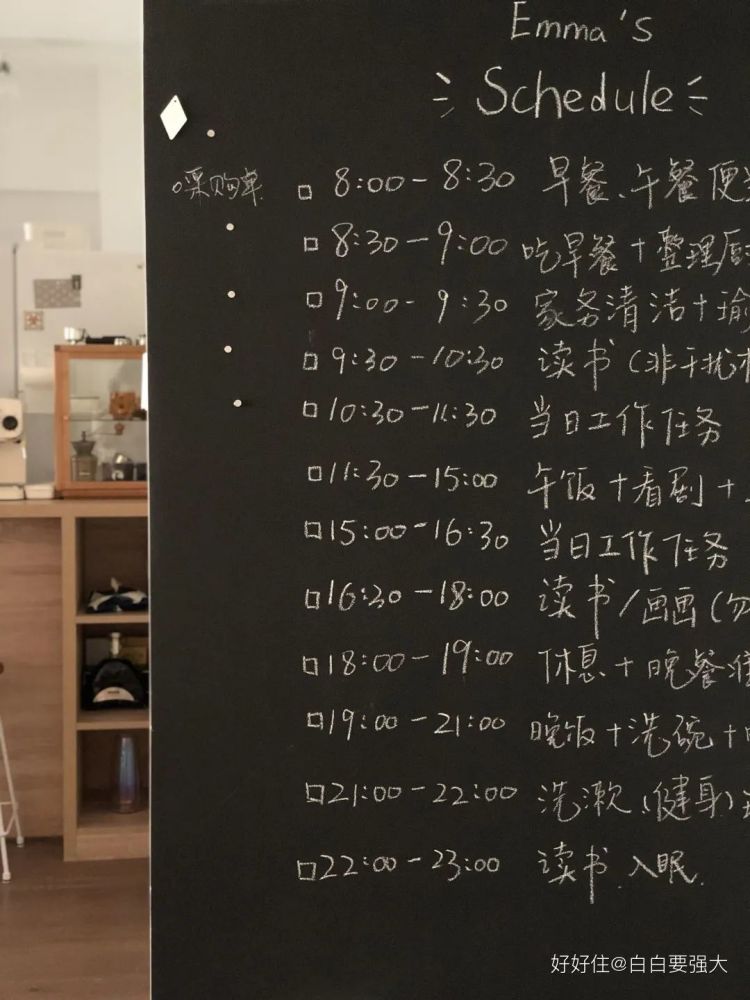 Emma's
Schedule
采购单
□ 8:00-8:30 早餐、午餐便
□ 8:30-9:00 吃早餐+整理厨
□ 9:00-9:30 家务清洁+瑜
□ 9:30-10:30 读书(非干扰
□ 10:30-11:30 当日工作任务
□ 11:30-15:00 午饭+看剧+
□ 15:00-16:30 当日工作任务
□ 16:30-18:00 读书/画画(勿
□ 18:00-19:00 休息+晚餐准
□ 19:00-21:00 晚饭+洗碗+
□ 21:00-22:00 洗漱、(健身)
□ 22:00-23:00 读书.入眠.
好好住@白白要强大